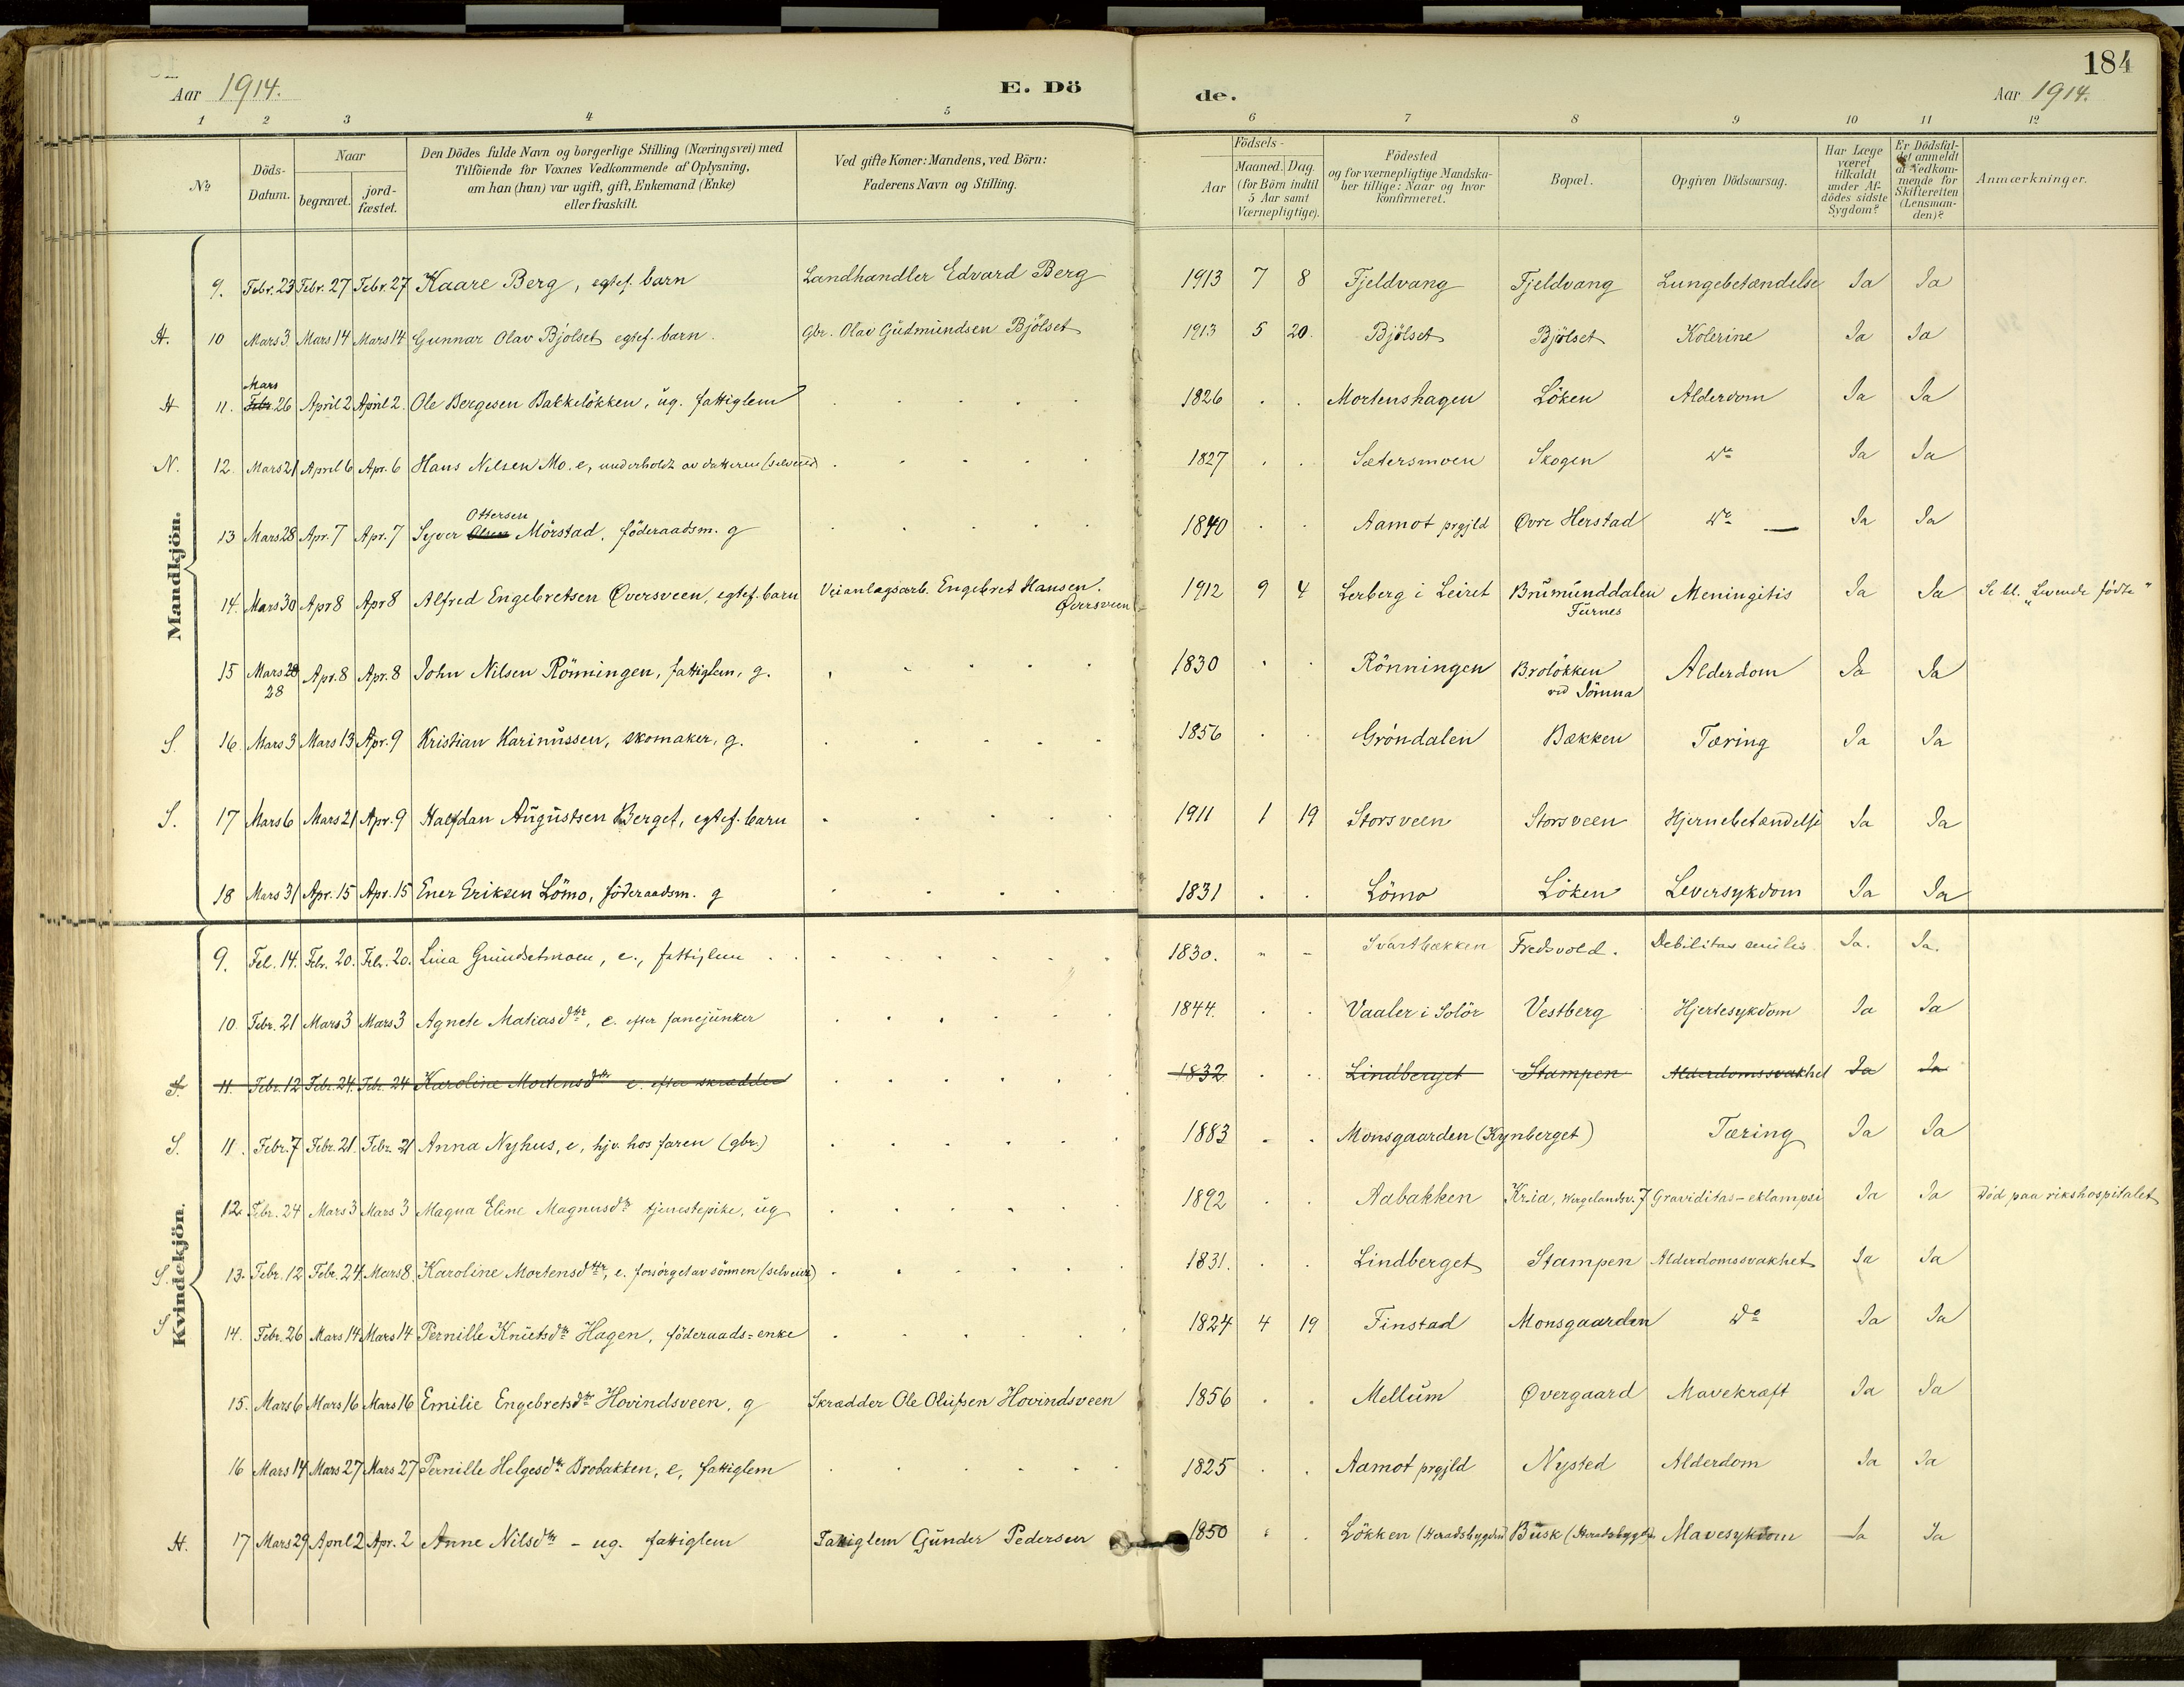 184
Aar 1914.
E. Dö de.
Aar 1914.
1 2 3 4 5 6 7 8 9 10 11 12
No
Döds-Datum.
Naar
begravet.
jord-fæstet.
Den Dödes fulde Navn og borgerlige Stilling (Næringsvei) med
Tilföiende for Voxnes Vedkommende af Oplysning,
om han (hun) var ugift, gift, Enkemand (Enke)
eller fraskilt.
Ved gifte Koner: Mandens, ved Börn:
Faderens Navn og Stilling.
Födsels-
Aar
Maaned. Dag.
(for Börn indtil
5 Aar samt
Værnepligtige).
Födested
og for værnepligtige Mandska-
ber tillige: Naar og hvor
konfirmeret.
Bopæl.
Opgiven Dödsaarsag.
Har Læge
været
tilkaldt
under Af-
dödes sidste
Sygdom?
Er Dödsfal-
det anmeldt
af Vedkom-
mende for
Skifteretten
(Lensman-
den)?
Anmærkninger.
Mandkjön.
9. Febr. 23 Febr. 27 Febr. 27 Kaare Berg, egtef. barn Landhandler Edvard Berg 1913 7 8 Fjeldvang Fjeldvang Lungebetændelse Ja Ja
H. 10 Mars 3 Mars 14 Mars 14 Gunnar Olav Bjölset egtef. barn. Gbr. Olav Gudmundsen Bjölset 1913 5 20. Bjölset Bjölset Kolerine Ja Ja
Mars
H 11. Febr. 26 April 2 April 2. Ole Bergesen Bakkelökken, ug. fattiglem 1826 Mortenshagen Löken Alderdom Ja Ja
N. 12. Mars 21 April 6 Apr. 6 Hans Nilsen Mo. e, underholdt av datteren (selveier) 1827 Sætersmoen Skogen do Ja Ja
Ottersen
13 Mars 28 Apr. 7 Apr. 7 Syver Olsen Mörstad, föderaadsm. g 1840 Aamot prgjld Øvre Herstad do Ja Ja
14. Mars 30 Apr 8 Apr 8 Alfred Engebretsen Øversveen, egtef. barn Veianlagsarb. Engebret Hansen Øversveen 1912 9 4 Lerberg i Leiret Brumunddalen Furnes Meningitis Ja Ja Se bl. "Levende födte"
15 Mars 28 28 Apr. 8 Apr. 8 John Nilsen Rönningen, fattiglem, g. 1830 Rönningen Brolökken ved Jömna Alderdom Ja Ja
S. 16. Mars 3 Mars 13 Apr. 9 Kristian Karinussen, skomaker, g. 1856 Gröndalen Bækken Tæring Ja Ja
S. 17 Mars 6 Mars 21 Apr. 9 Halfdan Augustsen Berget, egtef. barn 1911 1 19 Storsveen Storsveen Hjernebetændelse Ja Ja
18 Mars 31 Apr. 15 Apr. 15 Ener Eriksen Lömo, föderaadsm. g 1831 Lömo Löken Leversykdom Ja Ja
Kvindekjön.
9. Feb. 14. Febr. 20. Febr. 20. Lina Grundsetmoen, e., fattiglem 1830. Svartbækken Fredsvold. Debilitas senilis Ja. Ja.
10. Febr. 21 Mars 3 Mars 3 Agnete Matiasdtr, e. efter fanejunker 1844. Vaaler i Solör Vestberg Hjertesykdom Ja Ja
S. 11. Febr. 12 Febr. 24. Febr. 24 Karoline Mortensdtr e. efter skrædder 1832 Lindberget Stampen Alderdomssvakhet Ja Ja
S. 11. Febr. 7 Febr. 21. Febr. 21 Anna Nyhus, e, hjv. hos faren (gbr.) 1883 Monsgaarden (Kynberget) Tæring Ja Ja
12. Febr. 24 Mars 3 Mars 3 Magna Eline Magnusdtr tjenestepike, ug 1892 Aabakken Kr.ia, Wergelandsv. 7 Graviditas - eklampsi Ja Ja Död paa rikshospitalet
S. 13. Febr. 12 Febr. 24 Mars 8. Karoline Mortensdtr, e. forsörget av sönnen (selveier) 1831. Lindberget Stampen Alderdomssvakhet Ja Ja
S 14. Febr. 26 Mars 14 Mars 14 Pernille Knutsdtr Hagen, föderaads=enke 1824 4 19 Finstad Monsgaarden do Ja Ja
15. Mars 6 Mars 16 Mars 16 Emilie Engebretsdtr Hovindsveen, g Skrædder Ole Olufsen Hovindsveen 1856 Mellum Øvergaard Mavekræft Ja Ja
16 Mars 14 Mars 27 Mars 27 Pernille Helgesdtr Brobakken, e, fattiglem 1825 Aamot prgjld Nysted Alderdom Ja Ja
H. 17 Mars 29 April 2 Apr. 2 Anne Nilsdtr - ug. fattiglem Fattiglem Gunder Pedersen 1850 Lökken (Heradsbygden) Busk (Heradsbygden) Mavesykdom Ja Ja